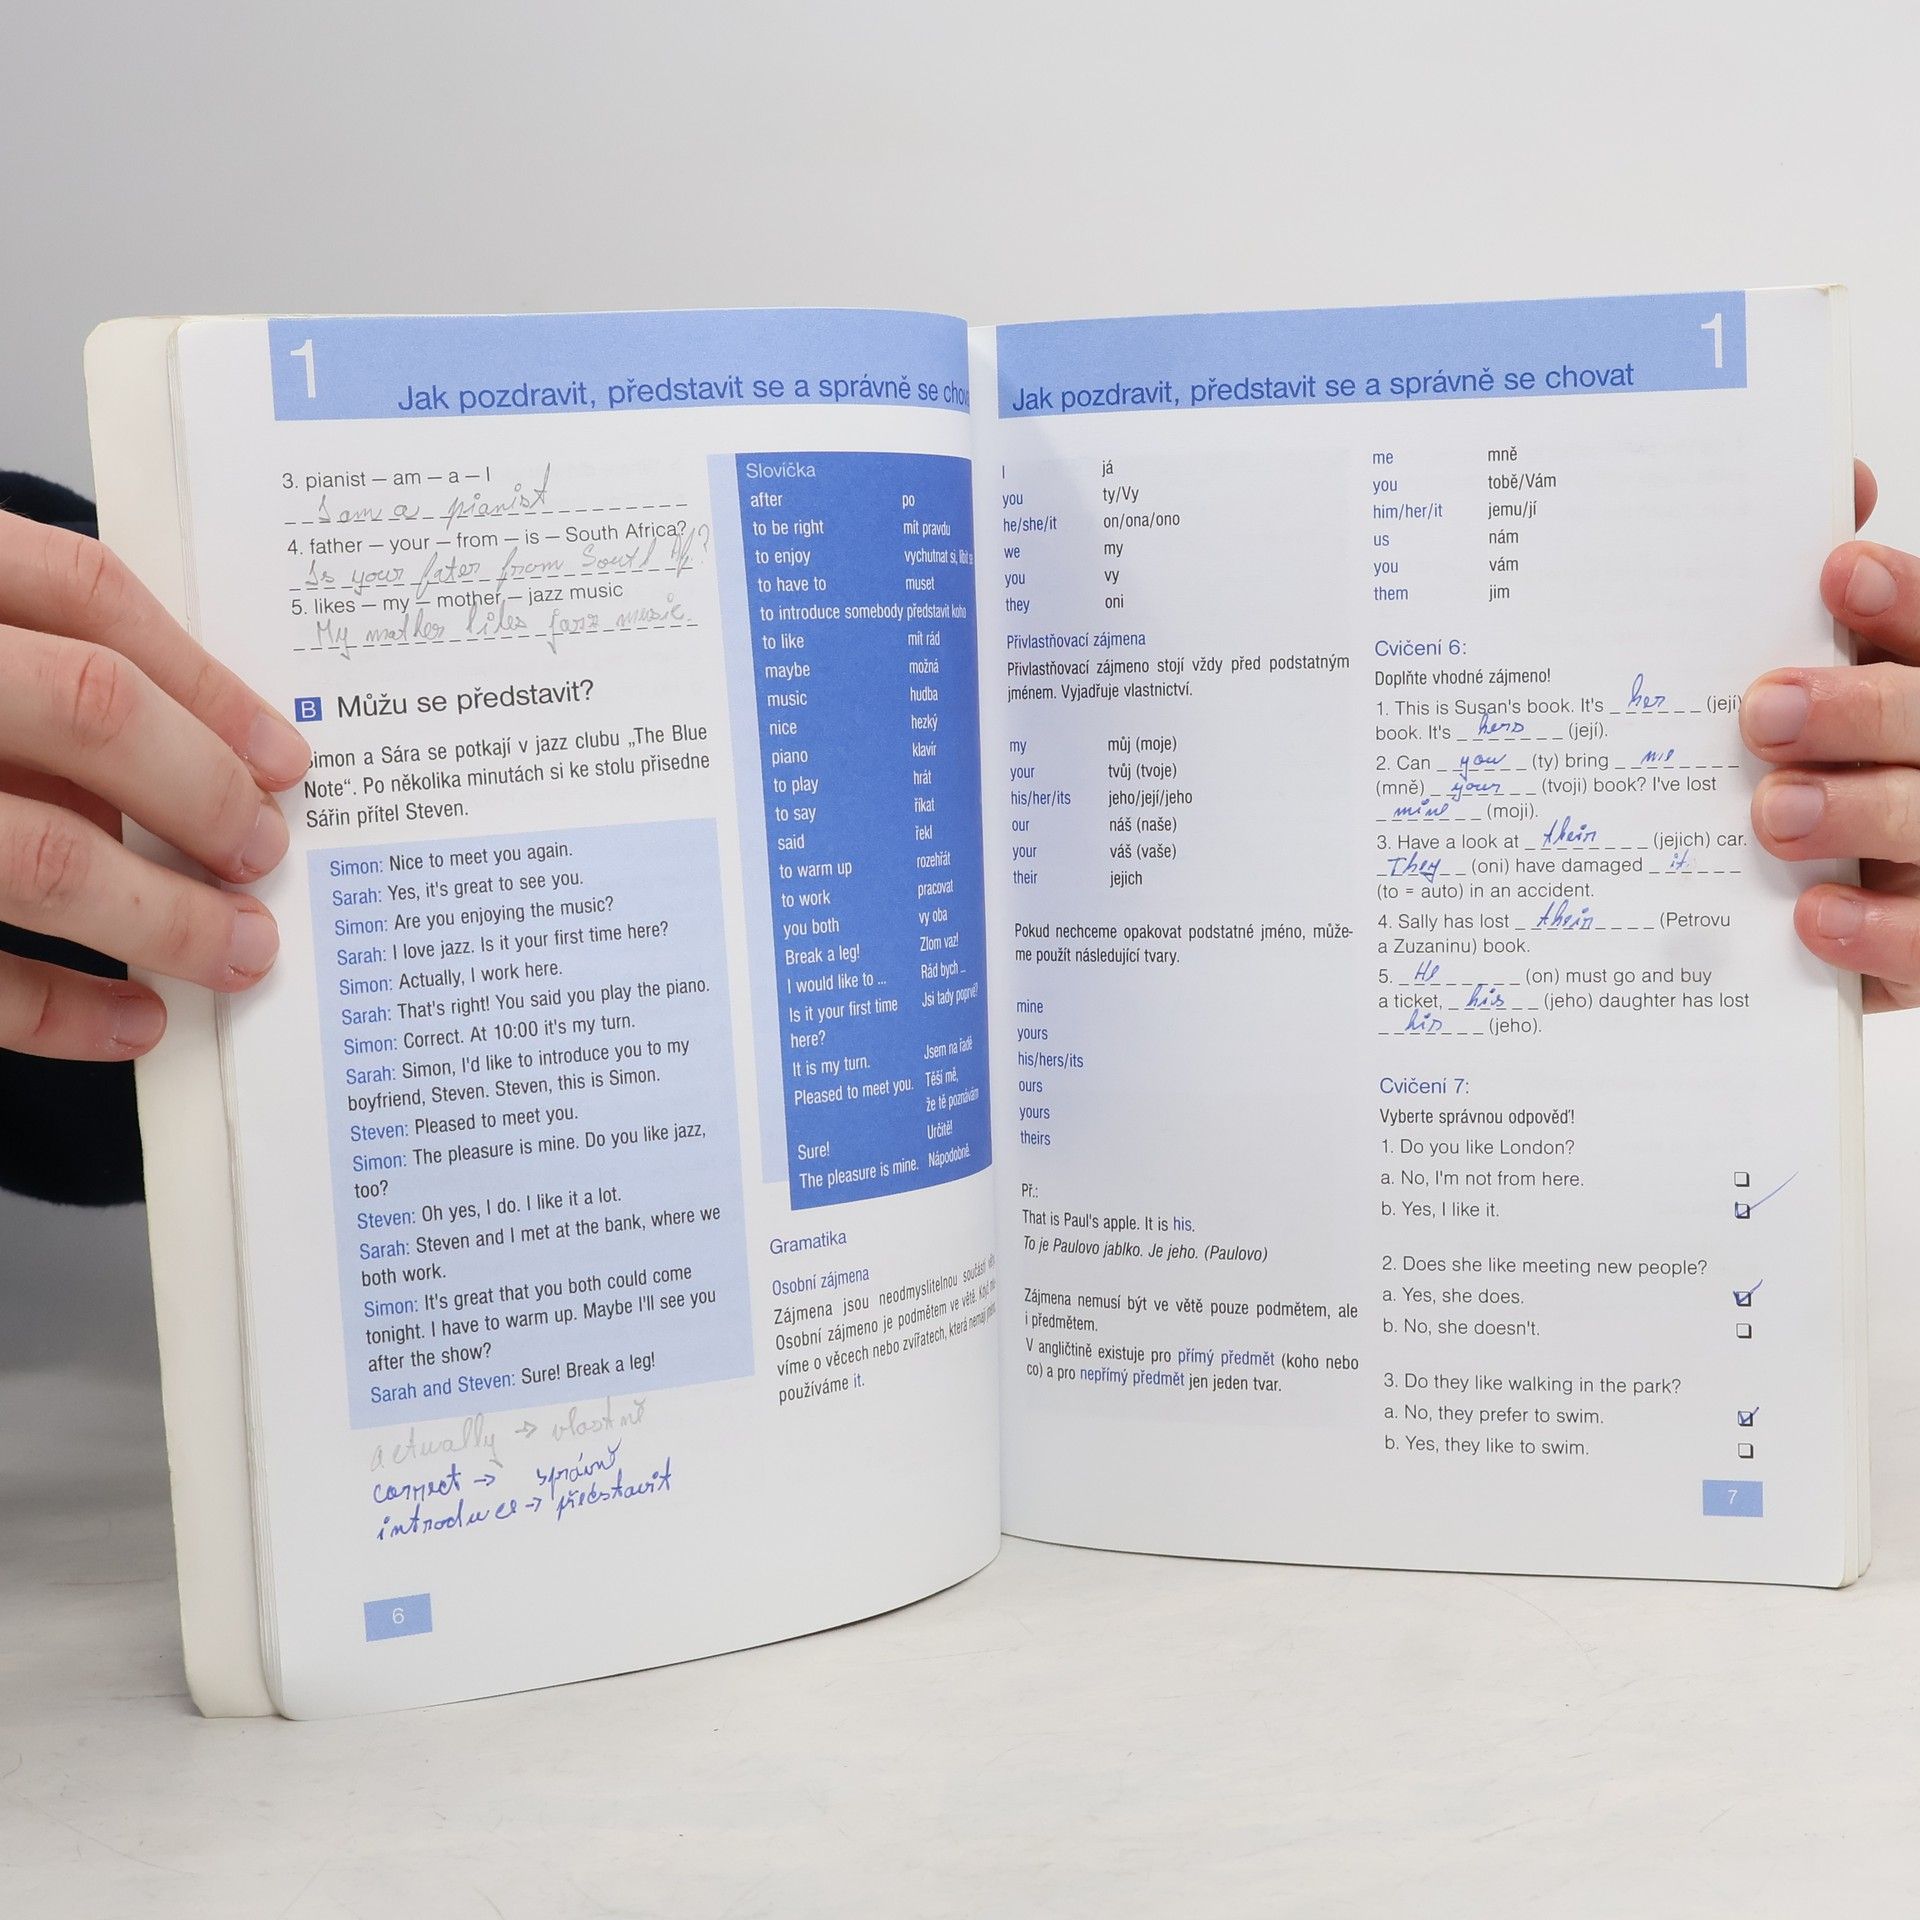 1
Jak pozdravit, představit se a správně se chov
3. pianist – am – a – I
I am a pianist
4. father – your – from – is – South Africa?
Is your fater from South Af?
5. likes – my – mother – jazz music
My mother likes jazz music.
B Můžu se představit?
Simon a Sára se potkají v jazz clubu „The Blue
Note“. Po několika minutách si ke stolu přisedne
Sářin přítel Steven.
Simon: Nice to meet you again.
Sarah: Yes, it's great to see you.
Simon: Are you enjoying the music?
Sarah: I love jazz. Is it your first time here?
Simon: Actually, I work here.
Sarah: That's right! You said you play the piano.
Simon: Correct. At 10:00 it's my turn.
Sarah: Simon, I'd like to introduce you to my
boyfriend, Steven. Steven, this is Simon.
Steven: Pleased to meet you.
Simon: The pleasure is mine. Do you like jazz,
too?
Steven: Oh yes, I do. I like it a lot.
Sarah: Steven and I met at the bank, where we
both work.
Simon: It's great that you both could come
tonight. I have to warm up. Maybe I'll see you
after the show?
Sarah and Steven: Sure! Break a leg!
actually → vlastně
correct → správně
introduce → představit
6
Slovíčka
after po
to be right mít pravdu
to enjoy vychutnat si, líbit se
to have to muset
to introduce somebody představit koho
to like mít rád
maybe možná
music hudba
nice hezký
piano klavír
to play hrát
to say říkat
said řekl
to warm up rozehřát
to work pracovat
you both vy oba
Break a leg! Zlom vaz!
I would like to ... Rád bych ...
Is it your first time Jsi tady poprvé?
here?
It is my turn. Jsem na řadě
Pleased to meet you. Těší mě,
že tě poznávám
Sure! Určitě!
The pleasure is mine. Nápodobně.
Gramatika
Osobní zájmena
Zájmena jsou neodmyslitelnou součástí věty.
Osobní zájmeno je podmětem ve větě. Když
víme o věcech nebo zvířatech, která nemají
používáme it.
1
Jak pozdravit, představit se a správně se chovat
I já
you ty/Vy
he/she/it on/ona/ono
we my
you vy
they oni
Přivlastňovací zájmena
Přivlastňovací zájmeno stojí vždy před podstatným
jménem. Vyjadřuje vlastnictví.
my můj (moje)
your tvůj (tvoje)
his/her/its jeho/její/jeho
our náš (naše)
your váš (vaše)
their jejich
Pokud nechceme opakovat podstatné jméno, může-
me použít následující tvary.
mine
yours
his/hers/its
ours
yours
theirs
Př.:
That is Paul's apple. It is his.
To je Paulovo jablko. Je jeho. (Paulovo)
Zájmena nemusí být ve větě pouze podmětem, ale
i předmětem.
V angličtině existuje pro přímý předmět (koho nebo
co) a pro nepřímý předmět jen jeden tvar.
me mně
you tobě/Vám
him/her/it jemu/jí
us nám
you vám
them jim
Cvičení 6:
Doplňte vhodné zájmeno!
1. This is Susan's book. It's her (její)
book. It's hers (její).
2. Can you (ty) bring me
(mně) your (tvoji) book? I've lost
mine (moji).
3. Have a look at their (jejich) car.
They (oni) have damaged it
(to = auto) in an accident.
4. Sally has lost their (Petrovu
a Zuzaninu) book.
5. He (on) must go and buy
a ticket, his (jeho) daughter has lost
his (jeho).
Cvičení 7:
Vyberte správnou odpověď!
1. Do you like London?
a. No, I'm not from here.
b. Yes, I like it.
2. Does she like meeting new people?
a. Yes, she does.
b. No, she doesn't.
3. Do they like walking in the park?
a. No, they prefer to swim.
b. Yes, they like to swim.
7